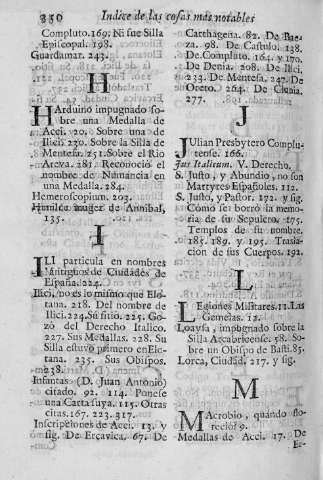 330 Indice de las cosas mas notables
Compluto. 169. Ni fue Silla
Episcopal. 198.
Guardamar. 243.
H
HArduino impugnado so-
bre una Medalla de
Acci. 20. Sobre una de
Ilici. 230. Sobre la Silla de
Mentesa. 251. Sobre el Rio
Areva. 281. Reconoció el
nombre de Numancia en
una Medalla. 284.
Hemeroscopium. 203.
Himilce muger de Annibal,
135.
I
ILI particula en nombres
antiguos de Ciudades de
España. 224.
Ilici, no es lo mismo que Elo-
tana. 218. Del nombre de
Ilici. 224. Su sitio. 225. Go-
zó del Derecho Italico.
227. Sus Medallas. 228. Su
Silla estuvo primero en Elo-
tana. 235. Sus Obispos.
238.
Infantas (D. Juan Antonio)
citado. 92. 114. Ponese
una Carta suya. 115. Otras
citas. 167. 223. 317.
Inscripciones de Acci. 13. y
sig. De Ercavica. 67. De
Carthagena. 82. De Bae-
za. 98. De Castulo. 138.
De Compluto. 164. y 170.
De Denia. 208. De Ilici.
233. De Mentesa. 247. De
Oreto. 264. De Clunia.
277.
J
JUlian Presbytero Complu-
tense. 166.
Jus Italicum. V. Derecho.
S. Justo, y Abundio, no son
Martyres Españoles. 112.
S. Justo, y Pastor. 192. y sig.
Cómo se borró la memo-
ria de su Sepulcro. 175.
Templos de su nombre.
185. 189. y 195. Trasla-
cion de sus Cuerpos. 192.
L
LEgiones Militares. 11. Las
Gemelas. 12.
Loaysa, impugnado sobre la
Silla Arcabricense. 58. So-
bre un Obispo de Basti. 85.
Lorca, Ciudad. 217. y sig.
M
MAcrobio, quándo flo-
reció? 9.
Medallas de Acci. 17. De
Er-